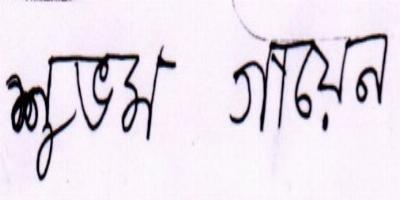 শুভম গায়েন